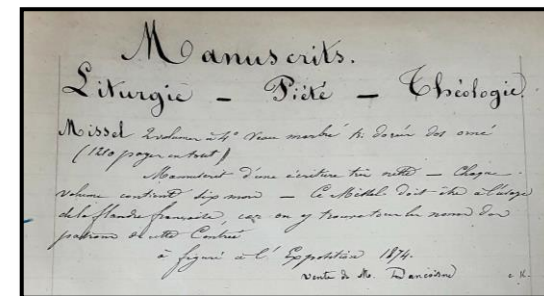 Manuscrits.
Liturgie – Piété – Théologie.
Missel 2 volumes in 4° veau marbré tr. dorées dos orné
(1210 pages en tout)
Manuscrit d'une écriture très nette – Chaque
volume contient six mois – Ce Missel doit être à l'usage
de la flandre française, car on y trouve tous les noms des
patrons de cette Contrée
a figuré à l'Exposition 1874.
vente de Mr.